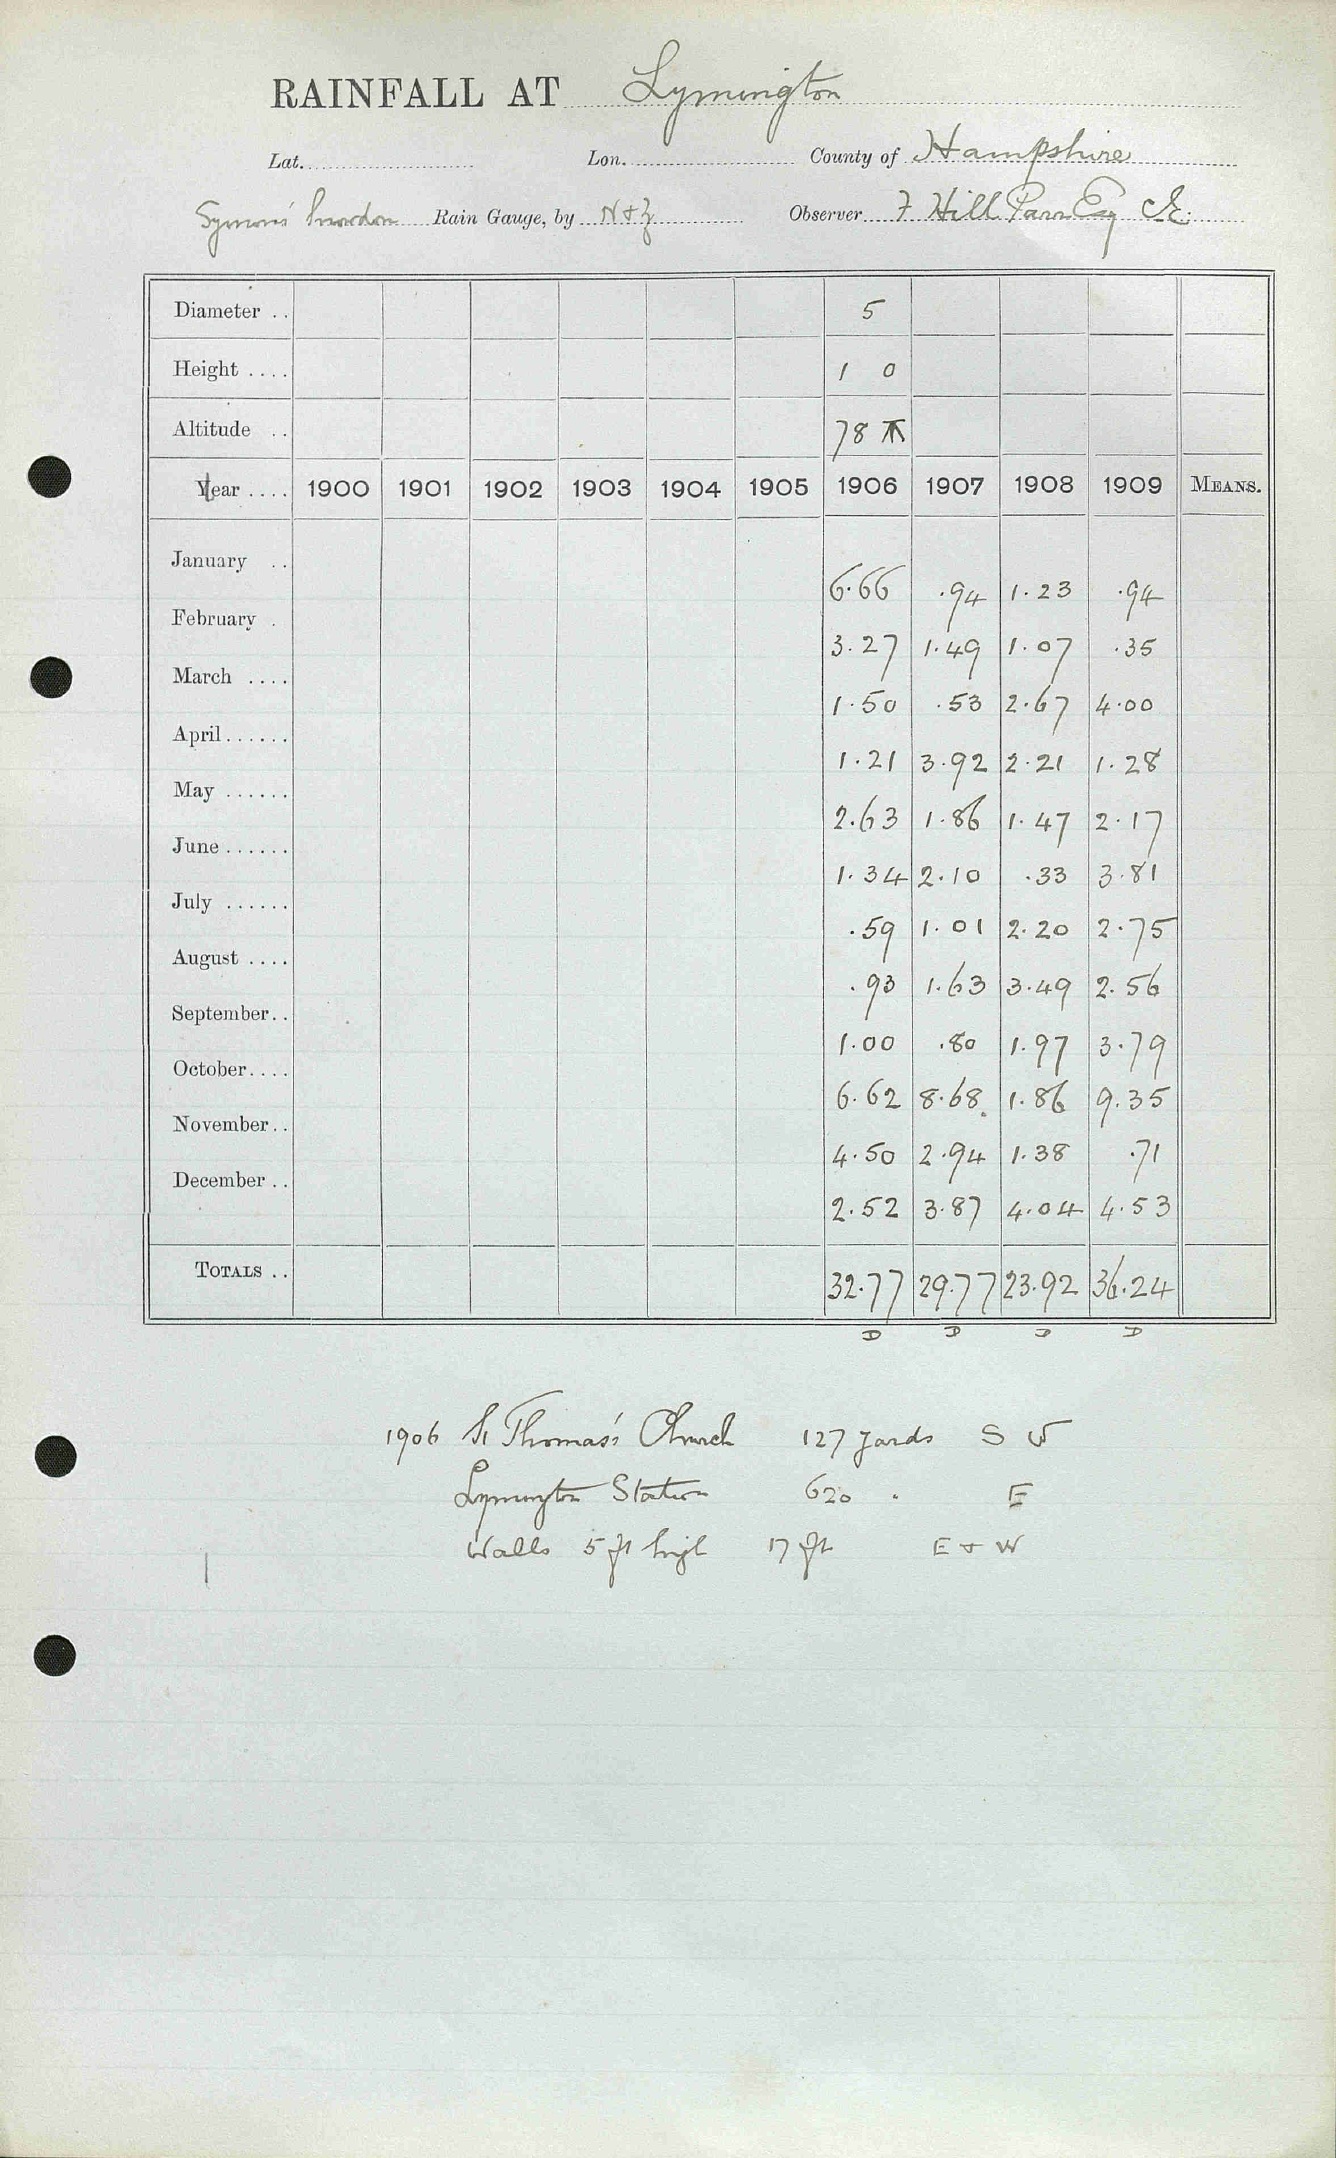 RAINFALL AT Lymington
Lat. Lon. County of Hampshire
Symons' Snowdon Rain Gauge, by N & Z Observer F Hill Parr Esq
Diameter .. 5
Height .... 1 0
Altitude .. 78
Year .... 1900 1901 1902 1903 1904 1905 1906 1907 1908 1909 MEANS.
January .. 6.66 .94 1.23 .94
February . 3.27 1.49 1.07 .35
March .... 1.50 .53 2.67 4.00
April...... 1.21 3.92 2.21 1.28
May ...... 2.63 1.86 1.47 2.17
June...... 1.34 2.10 .33 3.81
July ...... .59 1.01 2.20 2.75
August .... .93 1.63 3.49 2.56
September.. 1.00 .80 1.97 3.79
October.... 6.62 8.68 1.86 9.35
November.. 4.50 2.94 1.38 .71
December .. 2.52 3.87 4.04 4.53
TOTALS .. 32.77 29.77 23.92 36.24
D D D D
1906 St Thomas's Church 127 yards S W
Lymington Station 620 " E
Walls 5 ft high 17 ft E & W